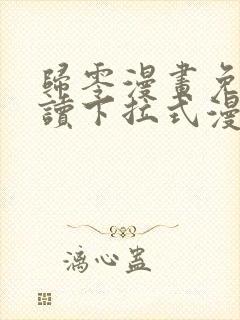 歸零漫畫免
讀下拉式漫
漓心蠱